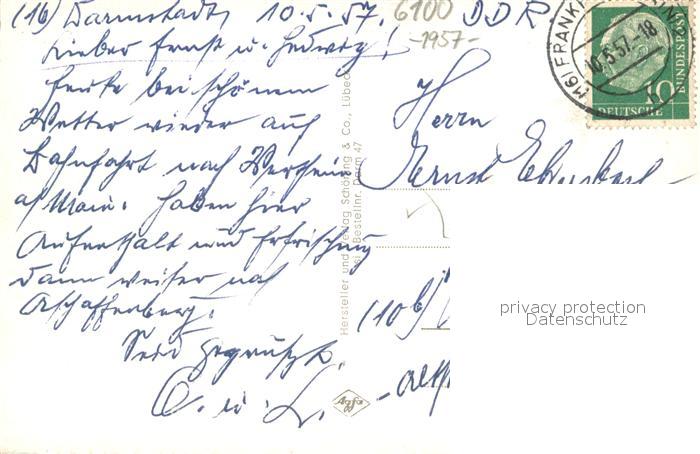 (16) Darmstadt, 10.5.57.
6100
-1957-
DDR
Lieber Ernst u. Hedwig!
heute bei schönem
Wetter wieder auf
Bahnfahrt nach Wertheim
a/Main. Haben hier
Aufenthalt und Erfrischung
dann weiter nach
Aschaffenburg.
Seid gegrüßt.
O. u. L.
Hersteller und Verlag Schöning & Co., Lübeck
Bestellnr. Darm 47
Agfa
(16) FRANKF
10.5.57-18
DEUTSCHE
BUNDESPOST
10
Herrn
Ernst
(10b)
privacy protection
Datenschutz